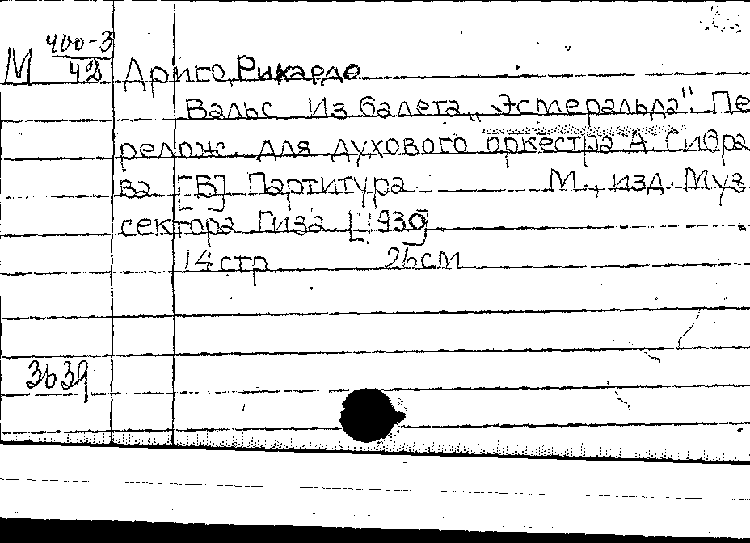 М 400-3
42 Дриго, Рикардо
Вальс из балета „Эсмеральда". Пе
релож. для духового оркестра А. Сибра
ва [В] Партитура М., изд. Муз
сектора Гиза [1930]
14 стр 26 см
3639